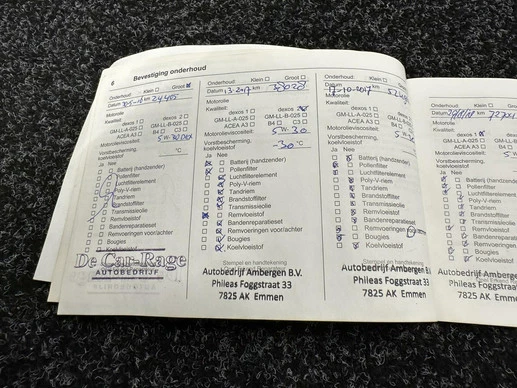 6 Bevestiging onderhoud
Onderhoud: Klein Groot
Datum km 24405
Motorolie
Kwaliteit:
dexos 1 dexos 2
GM-LL-A-025 GM-LL-B-025
ACEA A3 B4 C3
Motorolieviscositeit:
5 W
Vorstbescherming, °C
koelvloeistof
Ja Nee
Batterij (handzender)
Pollenfilter
Luchtfilterelement
Poly-V-riem
Tandriem
Brandstoffilter
Transmissieolie
Remvloeistof
Bandenreparatieset
Remvoeringen voor/achter
Bougies
Koelvloeistof
De Car-Rage
AUTOBEDRIJF
Onderhoud: Klein Groot
Datum 13-2-2017 km 38028
Motorolie
Kwaliteit:
dexos 1 dexos 2
GM-LL-A-025 GM-LL-B-025
ACEA A3 B4 C3
Motorolieviscositeit: 5 W-30
Vorstbescherming,
koelvloeistof -30 °C
Ja Nee
Batterij (handzender)
Pollenfilter
Luchtfilterelement
Poly-V-riem
Tandriem
Brandstoffilter
Transmissieolie
Remvloeistof
Bandenreparatieset
Remvoeringen voor/achter
Bougies
Koelvloeistof
Stempel en handtekening
Autobedrijf Ambergen B.V.
Phileas Foggstraat 33
7825 AK Emmen
Onderhoud: Klein
Datum 17-10-2017 km
Motorolie
Kwaliteit:
dexos 1
GM-LL-A-025
ACEA A3
Motorolieviscositeit:
Vorstbescherming,
koelvloeistof
Ja Nee
Batterij (handzender)
Pollenfilter
Luchtfilterelement
Poly-V-riem
Tandriem
Brandstoffilter
Transmissieolie
Remvloeistof
Bandenreparatieset
Remvoeringen
Bougies
Koelvloeistof
Stempel en handtekening
Autobedrijf Ambergen
Phileas Foggstraat 33
7825 AK Emmen
Onderhoud: Klein
Datum km
Motorolie
Kwaliteit:
dexos 1
GM-LL-A-025
ACEA A3
Motorolieviscositeit:
Vorstbescherming,
koelvloeistof
Ja Nee
Batterij (handzender)
Pollenfilter
Luchtfilterelement
Poly-V-riem
Tandriem
Brandstoffilter
Transmissieolie
Remvloeistof
Bandenreparatieset
Remvoeringen
Bougies
Koelvloeistof
Autobedrijf Ambergen
Phileas Foggstraat
7825 AK Emmen